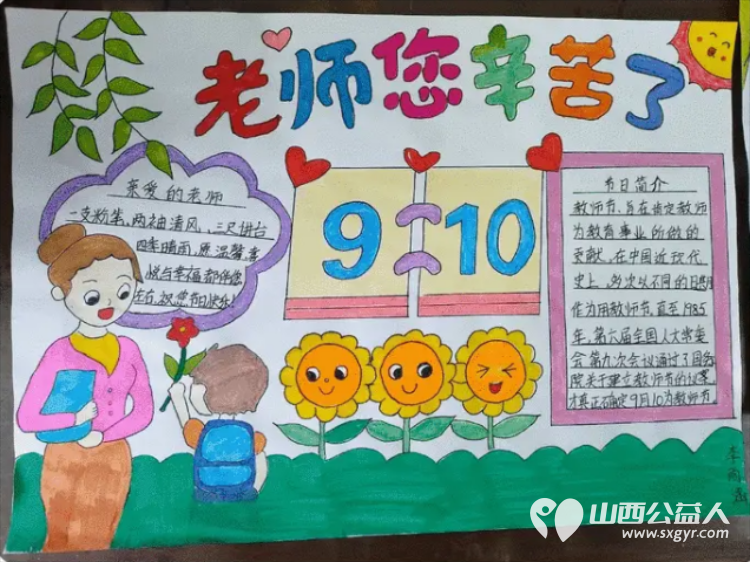 老师您辛苦了
亲爱的老师
一支粉笔，两袖清风，三尺讲台
四季晴雨，愿温馨，喜
悦与幸福都伴您
左右，祝您节日快乐！
9 10
节日简介
教师节，旨在肯定教师
为教育事业所做的
贡献，在中国近现代
史上，多次以不同的日期
作为教师节，直至1985
年，第六届全国人大常委
会第九次会议通过了国务
院关于建立教师节的议案，
才真正确定9月10为教师节
李
山西公益人
www.sxgyr.com